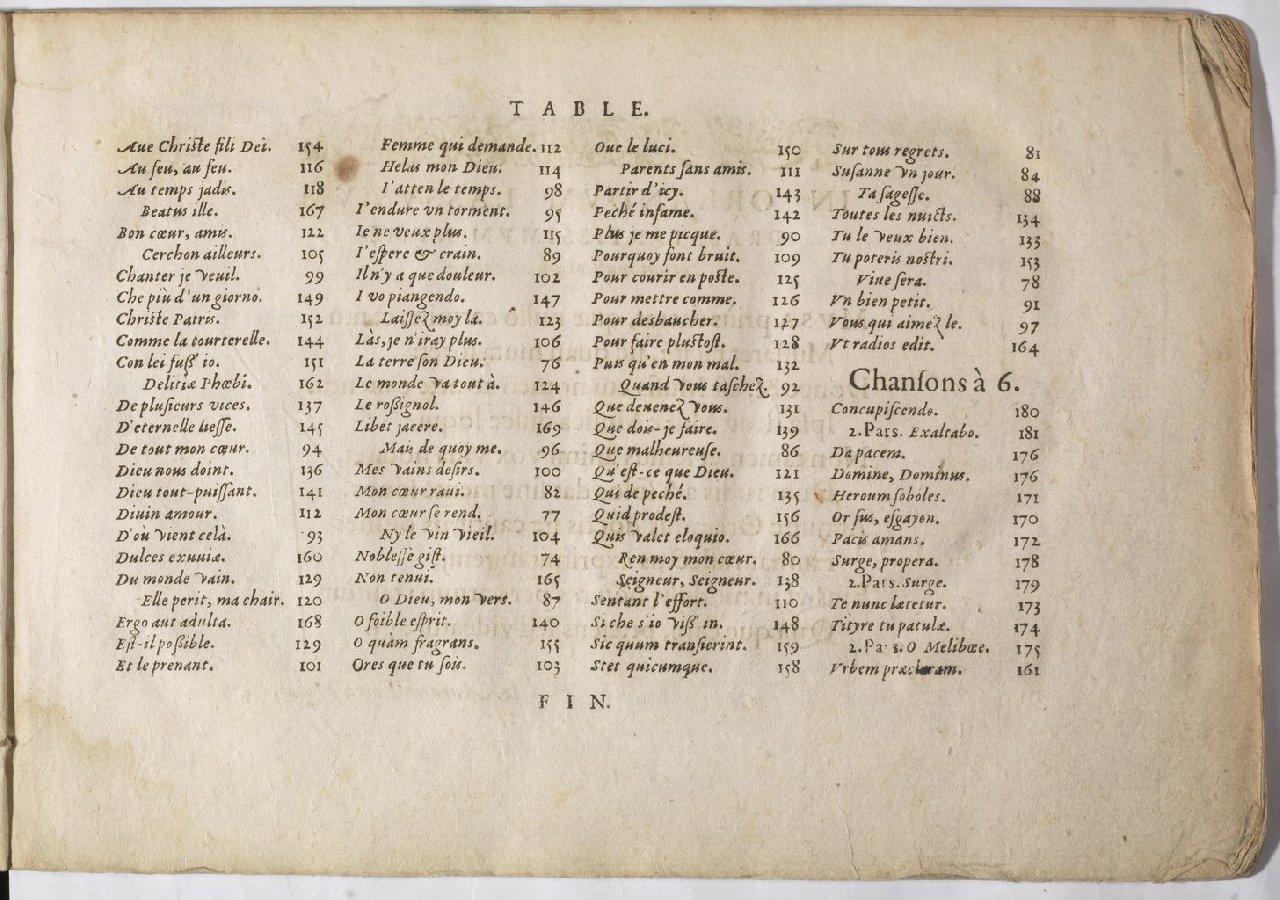 TABLE.
Aue Christe fili Dei. 154
Au feu, au feu. 116
Au temps jadis. 118
Beatus ille. 167
Bon cœur, amis. 122
Cerchon ailleurs. 105
Chanter je veuil. 99
Che più d'un giorno. 149
Christe Patris. 152
Comme la tourterelle. 144
Con lei fuss' io. 151
Delitiæ Phœbi. 162
De plusieurs vices. 137
D'eternelle liesse. 145
De tout mon cœur. 94
Dieu nous doint. 136
Dieu tout-puissant. 141
Diuin amour. 112
D'ou vient celà. 93
Dulces exuuiæ. 160
Du monde vain. 129
Elle perit, ma chair. 120
Ergo aut adulta. 168
Est-il possible. 129
Et le prenant. 101
Femme qui demande. 112
Helas mon Dieu. 114
I'atten le temps. 98
I'endure vn torment. 95
Ie ne veux plus. 115
I'espere & crain. 89
Il n'y a que douleur. 102
I vo piangendo. 147
Laissez moy là. 123
Làs, je n'iray plus. 106
La terre son Dieu. 76
Le monde va tout à. 124
Le rossignol. 146
Libet jacere. 169
Mais de quoy me. 96
Mes vains desirs. 100
Mon cœur raui. 82
Mon cœur se rend. 77
Ny le vin vieil. 104
Noblesse gist. 74
Non tenui. 165
O Dieu, mon vers. 87
O foible esprit. 140
O quàm fragrans. 155
Ores que tu sois. 103
Oue le luci. 150
Parents sans amis. 111
Partir d'icy. 143
Peché infame. 142
Plus je me picque. 90
Pourquoy font bruit. 109
Pour courir en poste. 125
Pour mettre comme. 126
Pour desbaucher. 127
Pour faire plustost. 128
Puis qu'en mon mal. 132
Quand vous taschez. 92
Que deuenez vous. 131
Que dois-je faire. 139
Que malheureuse. 86
Qu'est-ce que Dieu. 121
Qui de peché. 135
Quid prodest. 156
Quis valet eloquio. 166
Ren moy mon cœur. 80
Seigneur, Seigneur. 138
Sentant l'effort. 110
Si che s'io viss' in. 148
Sic quum transierint. 159
Stet quicumque. 158
Sur tous regrets. 81
Susanne vn jour. 84
Ta sagesse. 88
Toutes les nuicts. 134
Tu le veux bien. 133
Tu poteris nostri. 153
Viue sera. 78
Vn bien petit. 91
Vous qui aimez le. 97
Vt radios edit. 164
Chansons à 6.
Concupiscendo. 180
2. Pars. Exaltabo. 181
Da pacem. 176
Domine, Dominus. 176
Heroum soboles. 171
Or sus, esgayon. 170
Pacis amans. 172
Surge, propera. 178
2. Pars. Surge. 179
Te nunc lætetur. 173
Tityre tu patulæ. 174
2. Pars. O Melibœe. 175
Vrbem præclaram. 161
FIN.